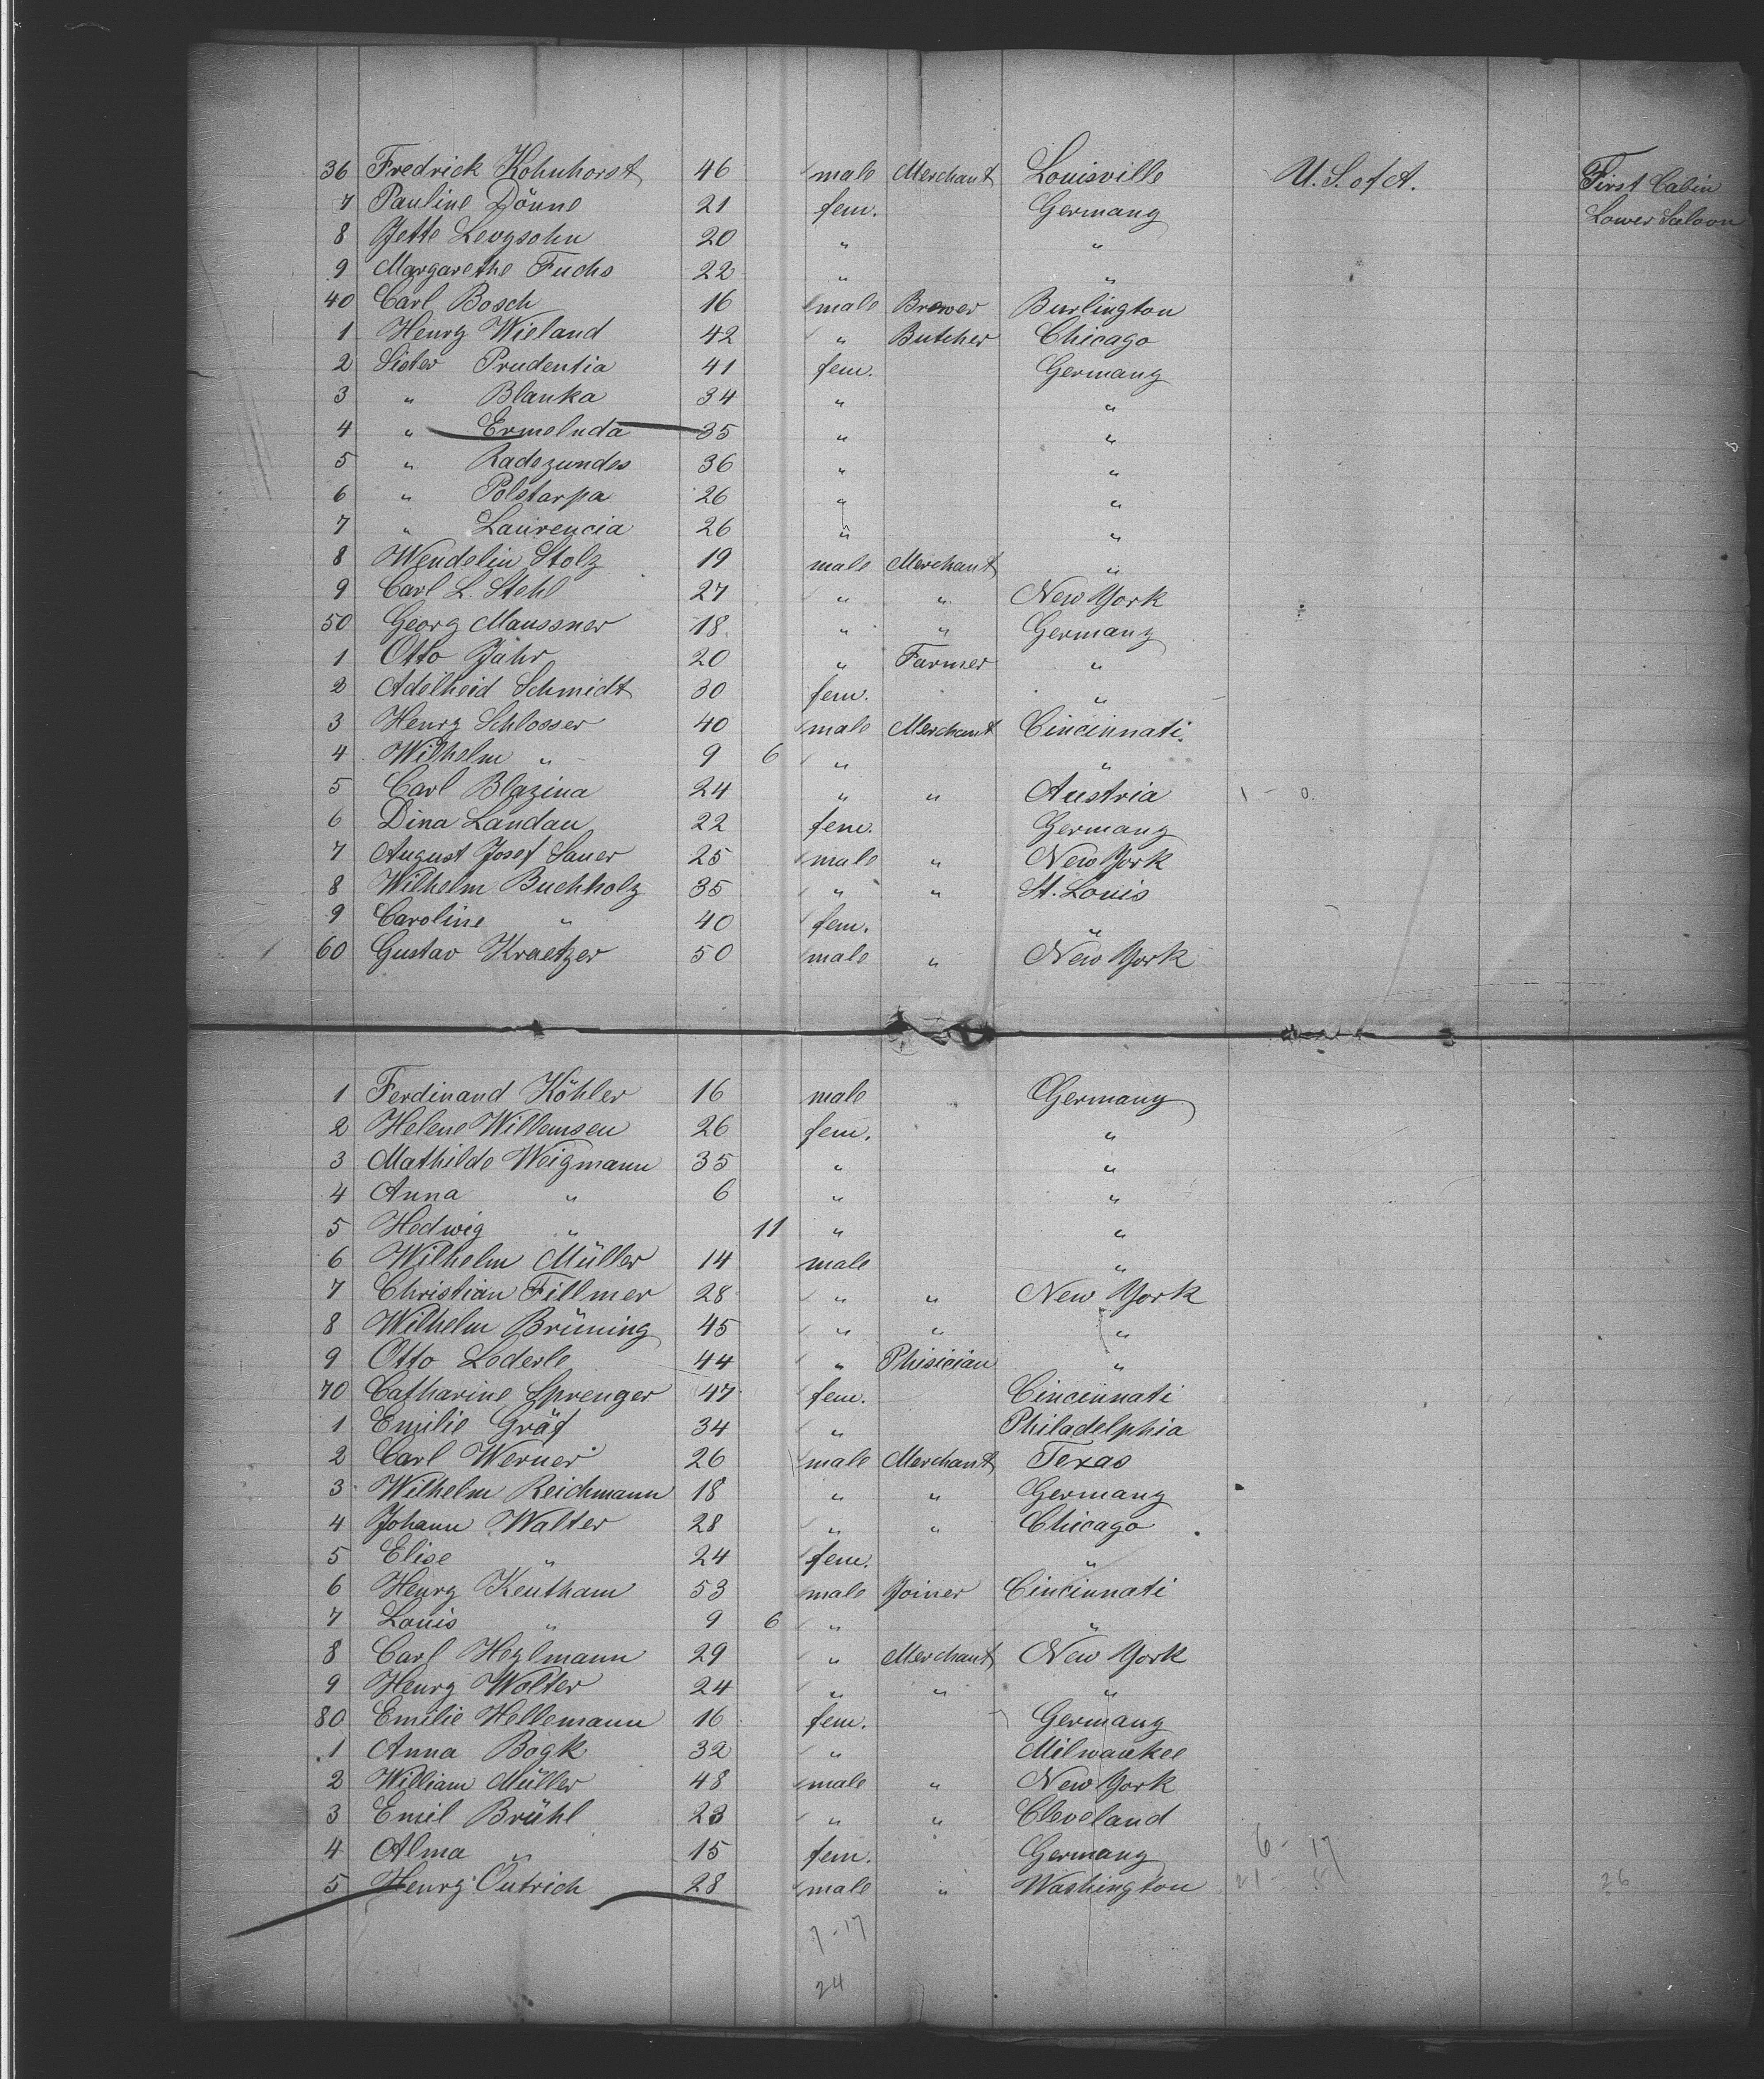 36 Fredrick Kohnhorst 46 male Merchant Louisville U. S. of A. First Cabin
7 Pauline Dönne 21 fem. Germany Lower Saloon
8 Jette Levysohn 20 " "
9 Margarethe Fuchs 22 " "
40 Carl Bosch 16 male Brewer Burlington
1 Henry Wieland 42 " Butcher Chicago
2 Sister Prudentia 41 fem. Germany
3 " Blanka 34 " "
4 " Ermelnda 35 " "
5 " Radezundes 36 " "
6 " Polskarpa 26 " "
7 " Laurencia 26 " "
8 Wendelin Stolz 19 male Merchant "
9 Carl L. Stehl 27 " " New York
50 Georg Maussner 18 " " Germany
1 Otto Jahr 20 " Farmer "
2 Adelheid Schmidt 30 fem. "
3 Henry Schlosser 40 male Merchant Cincinnati
4 Wilhelm " 9 6 " "
5 Carl Blazina 24 " " Austria 1 - 0
6 Dina Landau 22 fem. Germany
7 August Josef Sauer 25 male " New York
8 Wilhelm Buchholz 35 " " St. Louis
9 Caroline " 40 fem. "
60 Gustav Kraetzer 50 male " New York
1 Ferdinand Köhler 16 male Germany
2 Helene Willemsen 26 fem. "
3 Mathilde Weigmann 35 " "
4 Anna " 6 " "
5 Hedwig " 11 " "
6 Wilhelm Müller 14 male "
7 Christian Fillmer 28 " " New York
8 Wilhelm Brüning 45 " " "
9 Otto Loderle 44 " Phisician "
70 Catharine Sprenger 47 fem. Cincinnati
1 Emilie Gräf 34 " Philadelphia
2 Carl Werner 26 male Merchant Texas
3 Wilhelm Reichmann 18 " " Germany
4 Johann Walter 28 " " Chicago
5 Elise " 24 fem. "
6 Henry Keutham 53 male Joiner Cincinnati
7 Louis " 9 6 " "
8 Carl Heylmann 29 " Merchant New York
9 Henry Wolter 24 " " "
80 Emilie Hellemann 16 fem. Germany
1 Anna Bogk 32 " Milwaukee
2 William Müller 48 male " New York
3 Emil Brühl 23 " " Cleveland
4 Alma " 15 fem. Germany 6 - 17
5 Henry Outrich 28 male " Washington 21 - 51 26
7 - 17
24